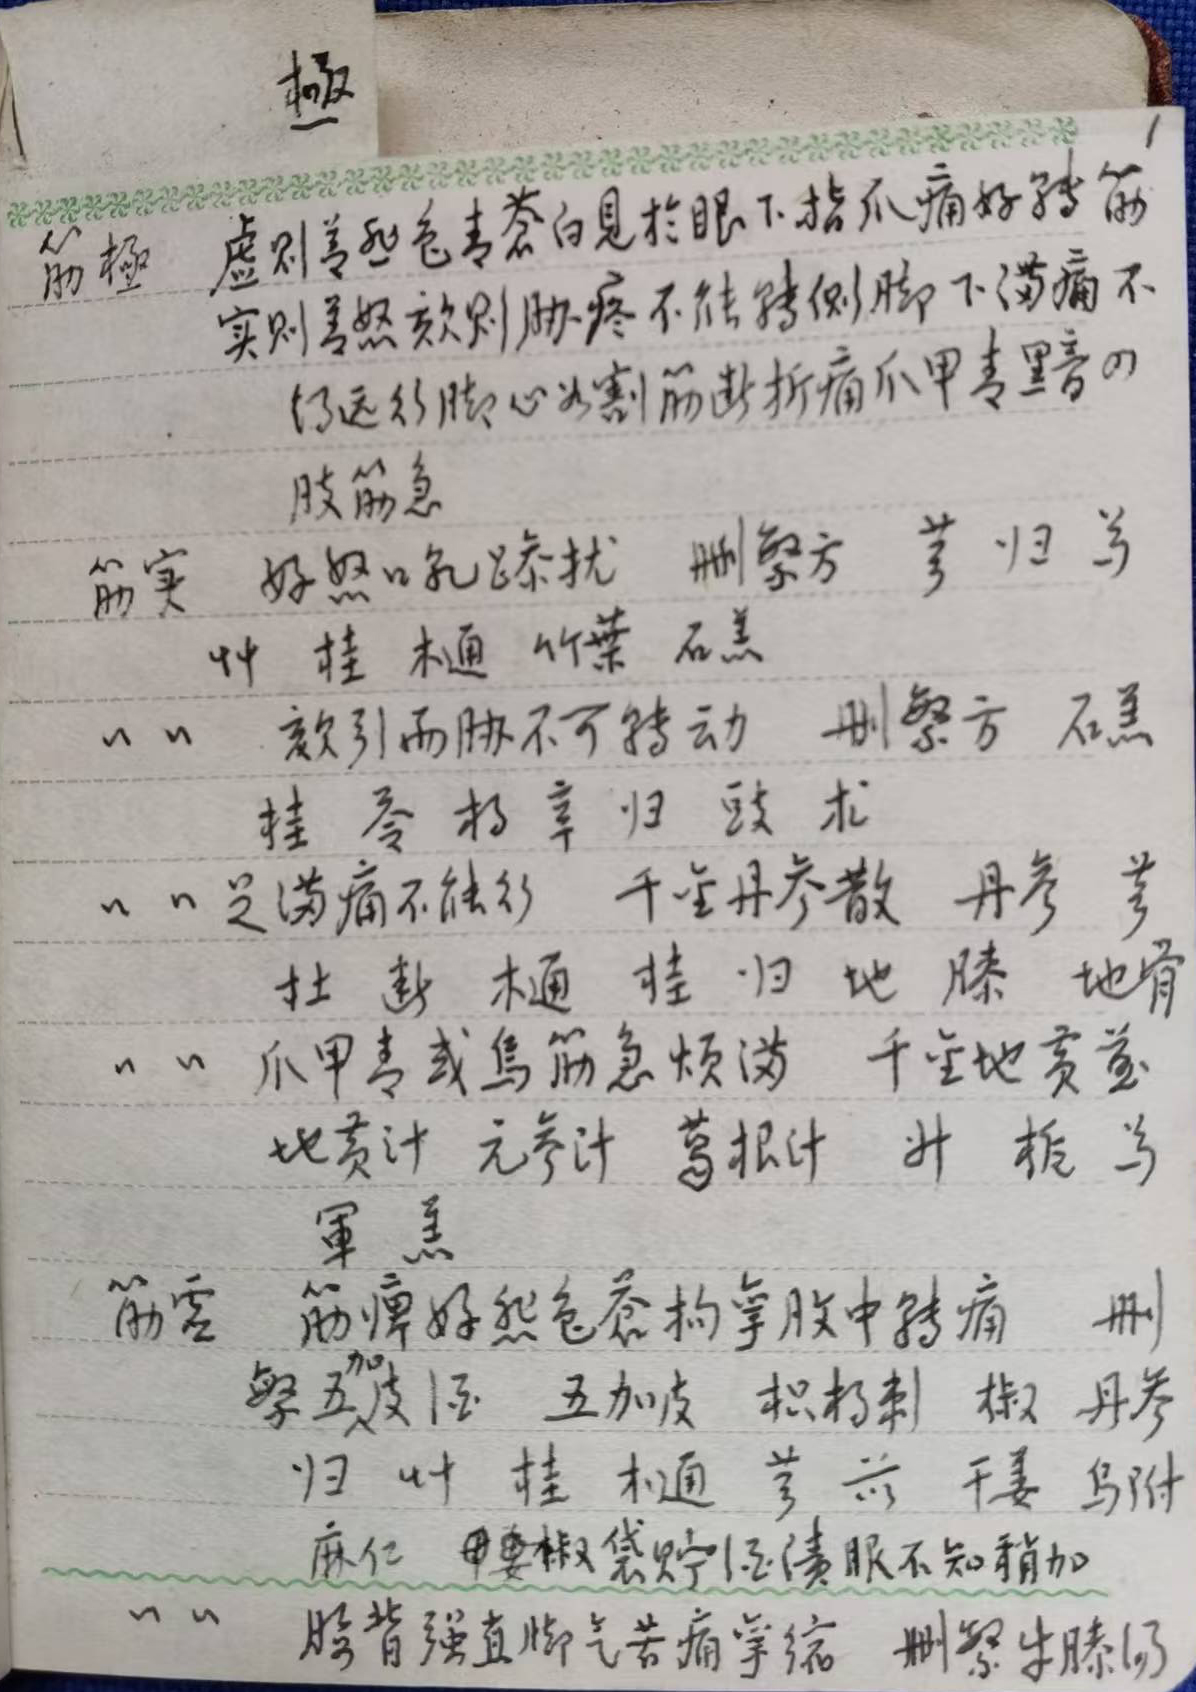 極
1
筋極 虚则善悲色青蒼白見於眼下指爪痛好转筋
实则善怒欬则胁疼不能转側脚下满痛不
得远行脚心如割筋断折痛爪甲青黑音四
肢筋急
筋实 好怒口乾躁扰 删繁方 芎归芍
艸 桂 木通 竹葉 石羔
〃〃 欬引两胁不可转动 删繁方 石羔
桂 苓 杨 辛 归 豉 朮
〃〃足满痛不能行 千金丹参散 丹参 芎
杜 断 木通 桂 归 地 膝 地骨
〃〃 爪甲青或烏筋急烦满 千金地黄煎
地黄汁 元参汁 葛根汁 升 栀 芍
軍 羔
筋虚 筋痺好怨色蒼拘挛股中转痛 删
繁五加皮酒 五加皮 枳杨刺 椒 丹参
归 艸 桂 木通 芎 苡 干姜 烏附
麻仁 椒 袋贮酒漬服不知稍加
〃〃 膝背强直脚气苦痛挛缩 删繁牛膝汤